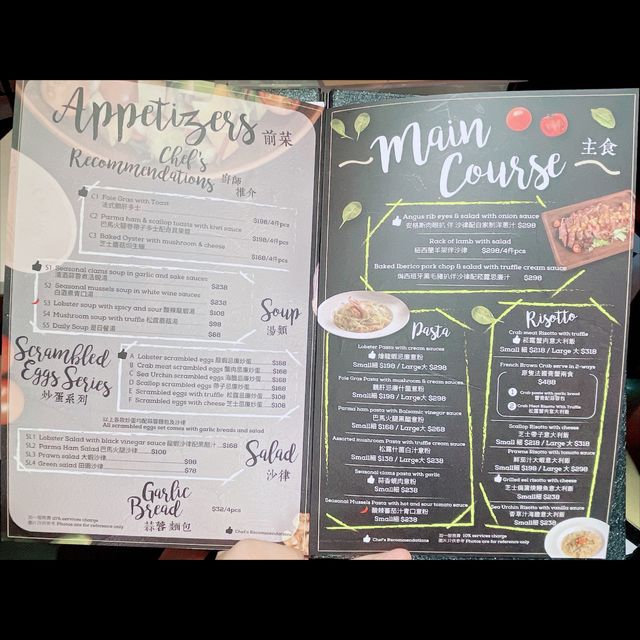 Appetizers 前菜
Chef's
Recommendations 廚師
推介
C1 Foie Gras with Toast
法式鵝肝多士 $198/4件pcs
C2 Parma ham & scallop toasts with kiwi sauce
巴馬火腿帶子多士配奇異果醬 $198/4件pcs
C3 Baked Oyster with mushroom & cheese
芝士蘑菇焗生蠔 $168/4件pcs
S1 Seasonal clams soup in garlic and sake sauces
$238
S2 Seasonal mussels soup in white wine sauces
白酒煮青口湯 $238
S3 Lobster soup with spicy and sour 酸辣龍蝦湯 $108
S4 Mushroom soup with truffle 松露蘑菇湯 $98
S5 Daily Soup 是日餐湯 $68
Soup
湯類
Scrambled
Eggs Series
炒蛋系列
A Lobster scrambled eggs 龍蝦忌廉炒蛋 $168
B Crab meat scrambled eggs 蟹肉忌廉炒蛋 $168
C Sea Urchin scrambled eggs 海膽忌廉炒蛋 $168
D Scallop scrambled eggs 帶子忌廉炒蛋 $168
E Scrambled eggs with truffle 松露忌廉炒蛋 $108
F Scrambled eggs with cheese 芝士忌廉炒蛋 $108
以上各款炒蛋均配蒜蓉麵包及沙律
All scrambled eggs set comes with garlic breads and salad
SL1 Lobster Salad with black vinegar sauce 龍蝦沙律配黑醋汁 $168
SL2 Parma Ham Salad 巴馬火腿沙律 $108
SL3 Prawn salad 大蝦沙律 $98
SL4 Green salad 田園沙律 $78
Salad
沙律
Garlic
Bread
蒜蓉麵包
$32/4pcs
加一服務費 10% services charge
圖片只供參考 Photos are for reference only
Chef's Recommendations
Main
Course 主食
Angus rib eyes & salad with onion sauce
安格斯肉眼扒 伴 沙律配自家制洋蔥汁 $298
Rack of lamb with salad
紐西蘭羊架伴沙律 $298/4件pcs
Baked Iberico pork chop & salad with truffle cream sauce
焗西班牙黑毛豬扒伴沙律配菘露忌廉汁 $298
Pasta
Lobster Pasta with cream sauces
燴龍蝦忌廉意粉
Small細 $198 / Large大 $298
Foie Gras Pasta with mushroom & cream sauces
鵝肝忌廉什菌意粉
Small細 $198 / Large大 $298
Parma ham pasta with Balsamic vinegar sauces
巴馬火腿黑醋意粉
Small細 $168 / Large大 $268
Assorted mushroom Pasta with truffle cream sauces
松露什菌白汁意粉
Small細 $138 / Large大 $238
Seasonal clams pasta with garlic
蒜香蜆肉意粉
Small細 $238
Seasonal Mussels Pasta with hot and sour tomato sauce
酸辣蕃茄汁青口意粉
Small細 $238
Risotto
Crab meat Risotto with truffle
菘露蟹肉意大利飯
Small細 $218 / Large大 $318
French Brown Crab serve in 2-ways
原隻法國麵包蟹兩食
$488
1 Crab paste with garlic bread
蟹膏配蒜蓉包
2 Crab Meat Risotto With Truffle
松露蟹肉意大利飯
Scallop Risotto with cheese
芝士帶子意大利飯
Small 細 $218 / Large大 $318
Prawns Risotto with tomato sauces
鮮茄汁大蝦意大利飯
Small細 $198 / Large大 $298
Grilled eel risotto with cheese
芝士燒鰻魚意大利飯
Small細 $238
Sea Urchin Risotto with vanilla sauce
香草汁海膽意大利飯
Small細 $238
Chef's Recommendations
加一服務費 10% services charge
圖片只供參考 Photos are for reference only